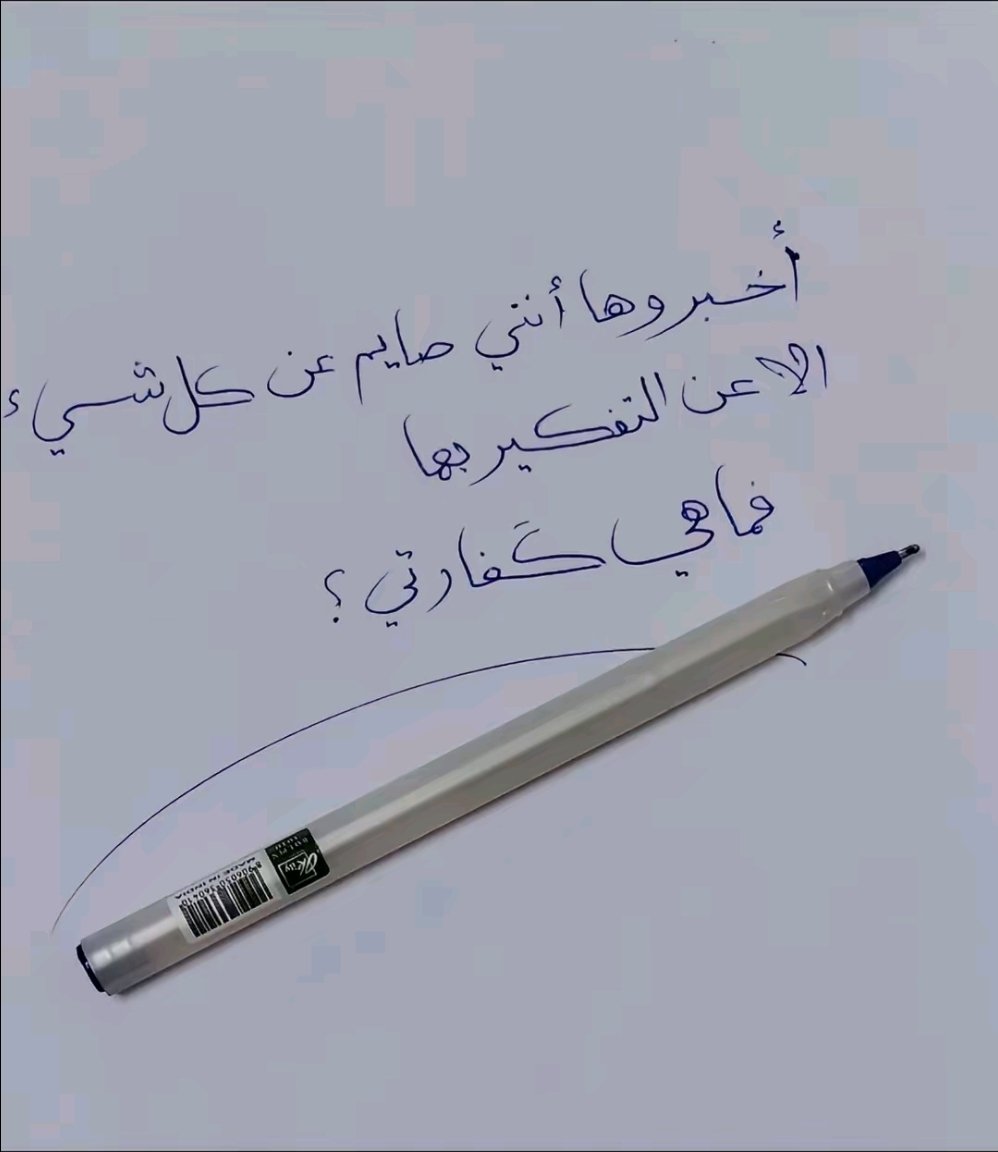 أخبروها أنني صايم عن كل شيء
الا عن التفكير بها
فما هي كفارتي ؟
MADE IN INDIA